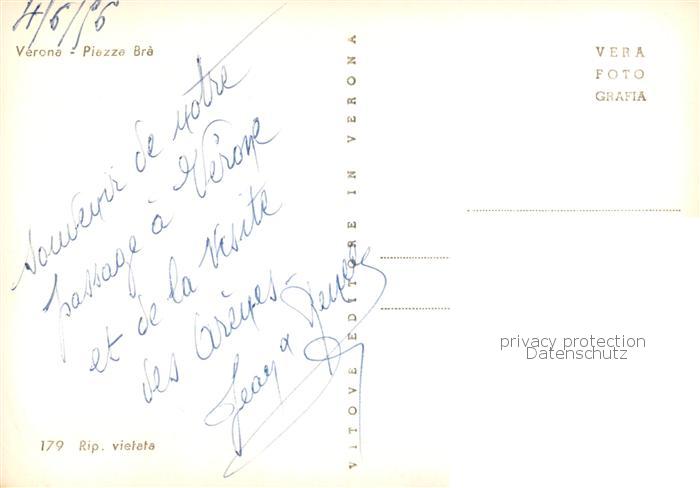 4/6/56
Verona - Piazza Brà
VERA
FOTO
GRAFIA
Souvenir de notre
passage à Vérone
et de la visite
des Arènes -
Jean & Renée
VITOVE EDITORE IN VERONA
privacy protection
Datenschutz
179 Rip. vietata